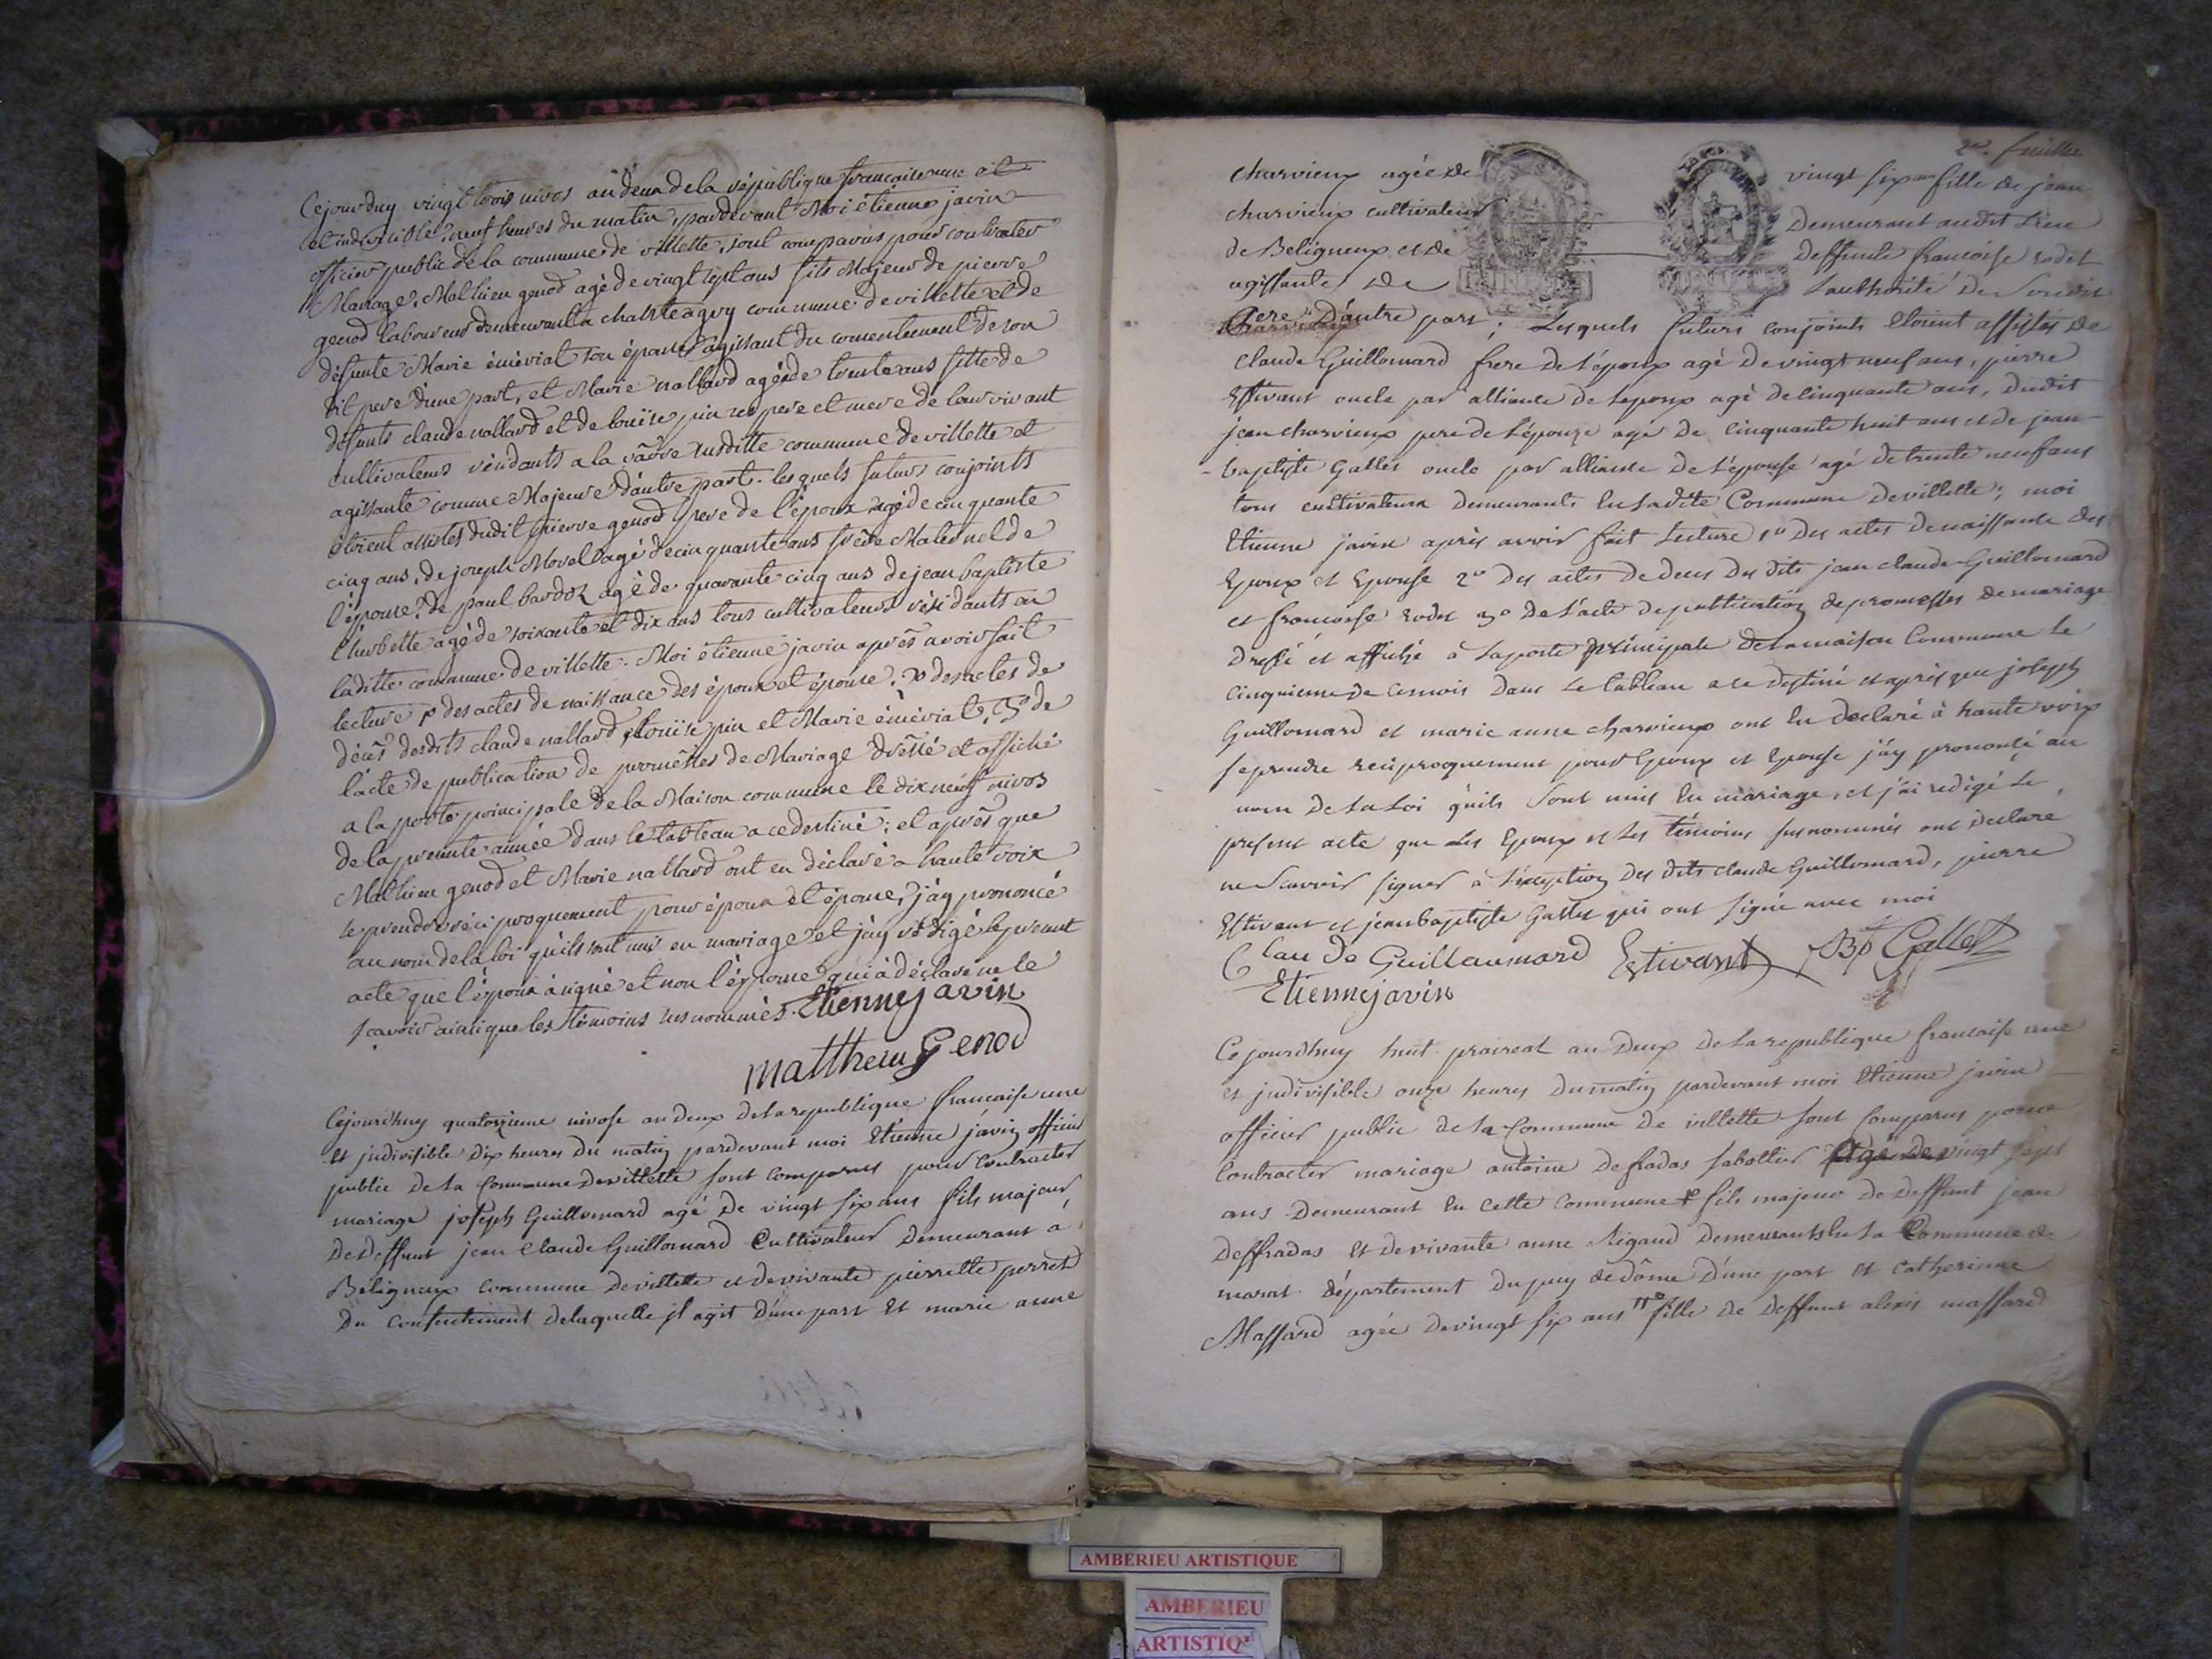 Cejourduy vingt trois nivos an deux de la république francaise une et
et indivisible, neuf heures du matin, pardevant Moi étienne javin
officier public de la commune de villette, sont comparus pour contracter
Mariage, Mathieu genod agé de vingt sept ans fils Majeur de pierre
genod laboureur demeurant a commune de villette et de
défunte Marie éméviat son épouse agissant du consentement de son
dit pere d'une part, et Marie nallard agée de trente ans fille de
défunts claude nallard et de louise pin ses pere et mere de leur vivant
cultivateurs résidants a la susditte commune de villette et
agissante comme Majeure d'autre part. lesquels futurs conjoints
étoient assistés dudit pierre genod pere de l'époux agé de cinquante
cinq ans, de joseph Morel agé de cinquante ans frère Maternel de
l'épouse, de paul bardoz agé de quarante cinq ans de jean baptiste
cherbette agé de soixante et dix ans tous cultivateurs résidants en
laditte commune de villette. Moi étienne javin après avoir fait
lecture 1º des actes de naissance des époux et épouse. 2º des actes de
décés desdits claude nallard, louise pin et Marie éméviat, 3º de
l'acte de publication de promêsses de Mariage drêssé et affiché
a la porte principale de la Maison commune le dix neuf nivos
de la presente année dans le tableau a ce destiné; et après que
Mathieu genod et Marie nallard ont eu déclaré a haute voix
se prendre réciproquement pour époux et épouse, j'ay prononcé
au nom de la loi qu'ils sont unis en mariage et j'ay rédigé le present
acte que l'époux a signé et non l'épouse qui a déclaré ne le
scavoir ainsi que les témoins susnommés. Etienne javin
matthieu Genod
Cejourdhuy quatorzieme nivose an deux de la republique francaise une
et judivisible dix heures du matin pardevant moi Etienne javin officier
public de la Commune de villette sont comparus pour Contracter
mariage joseph Guillomard agé de vingt six ans fils majeur
de deffunt jean Claude Guillomard Cultivateur Demeurant à
Béligneux commune de villette et de vivante pierrette perret
du consentement de laquelle jl agit d'une part Et marie anne
2e feuille
charvieux agée de vingt six ans fille de jean
charvieux cultivateur Demeurant audit Lieu
de Beligneux et de Deffunte francoise rodet
agissante de L'authorité de Sondit
pere D'autre part; Lesquels futurs conjoints Etoient assistés de
Claude Guillomard frere de l'époux agé de vingt neuf ans, pierre
Estivant oncle par alliance de Lepoux agé de cinquante ans, Dudit
jean charvieux pere de l'épouse agé de cinquante huit ans et de jean
baptiste Gallet oncle par alliance de L'épouse agé de trente neuf ans
tous cultivateurs Demeurants En Ladite Commune de villette; moi
Etienne javin après avoir fait Lecture 1º Des actes de naissance des
Epoux et Epouse 2º Des actes de deces Des dits jean claude Guillomard
et francoise rodet 3º De L'acte de publication de promesses de mariage
Dressé et affiché à La porte principale De la maison Commune Le
cinquieme de ce mois Dans Le tableau a ce Destiné et après que joseph
Guillomard et marie anne charvieux ont Eu declaré à haute voix
se prendre reciproquement pour Epoux et Epouse j'ay prononcé au
nom de La Loi qu'ils Sont unis En mariage, et j'ai redigé Le
present acte que Les Epoux et Les témoins susnommés ont declaré
ne Scavoir signer à l'exception des dits claude Guillomard, pierre
Estivant et jean baptiste Gallet qui ont Signé avec moi
Claude Guillaumard Estivant JBp Gallet
Etienne javin
Ce jourdhuy huit praireal an Deux de la republique francaise une
et judivisible onze heures du matin pardevant moi Etienne javin
officier public de la Commune de villette sont Comparus pour
Contracter mariage antoine Defradas Sabottier Agé De vingt sept
ans Demeurant En cette commune fils majeur de Deffunt jean
Deffradas Et de vivante anne Rigaud Demeurants En La Commune de
marat département du puy de dôme D'une part Et Catherinne
Massard agée de vingt six ans fille de Deffunt alexis massard
AMBERIEU ARTISTIQUE
AMBERIEU
ARTISTIQ